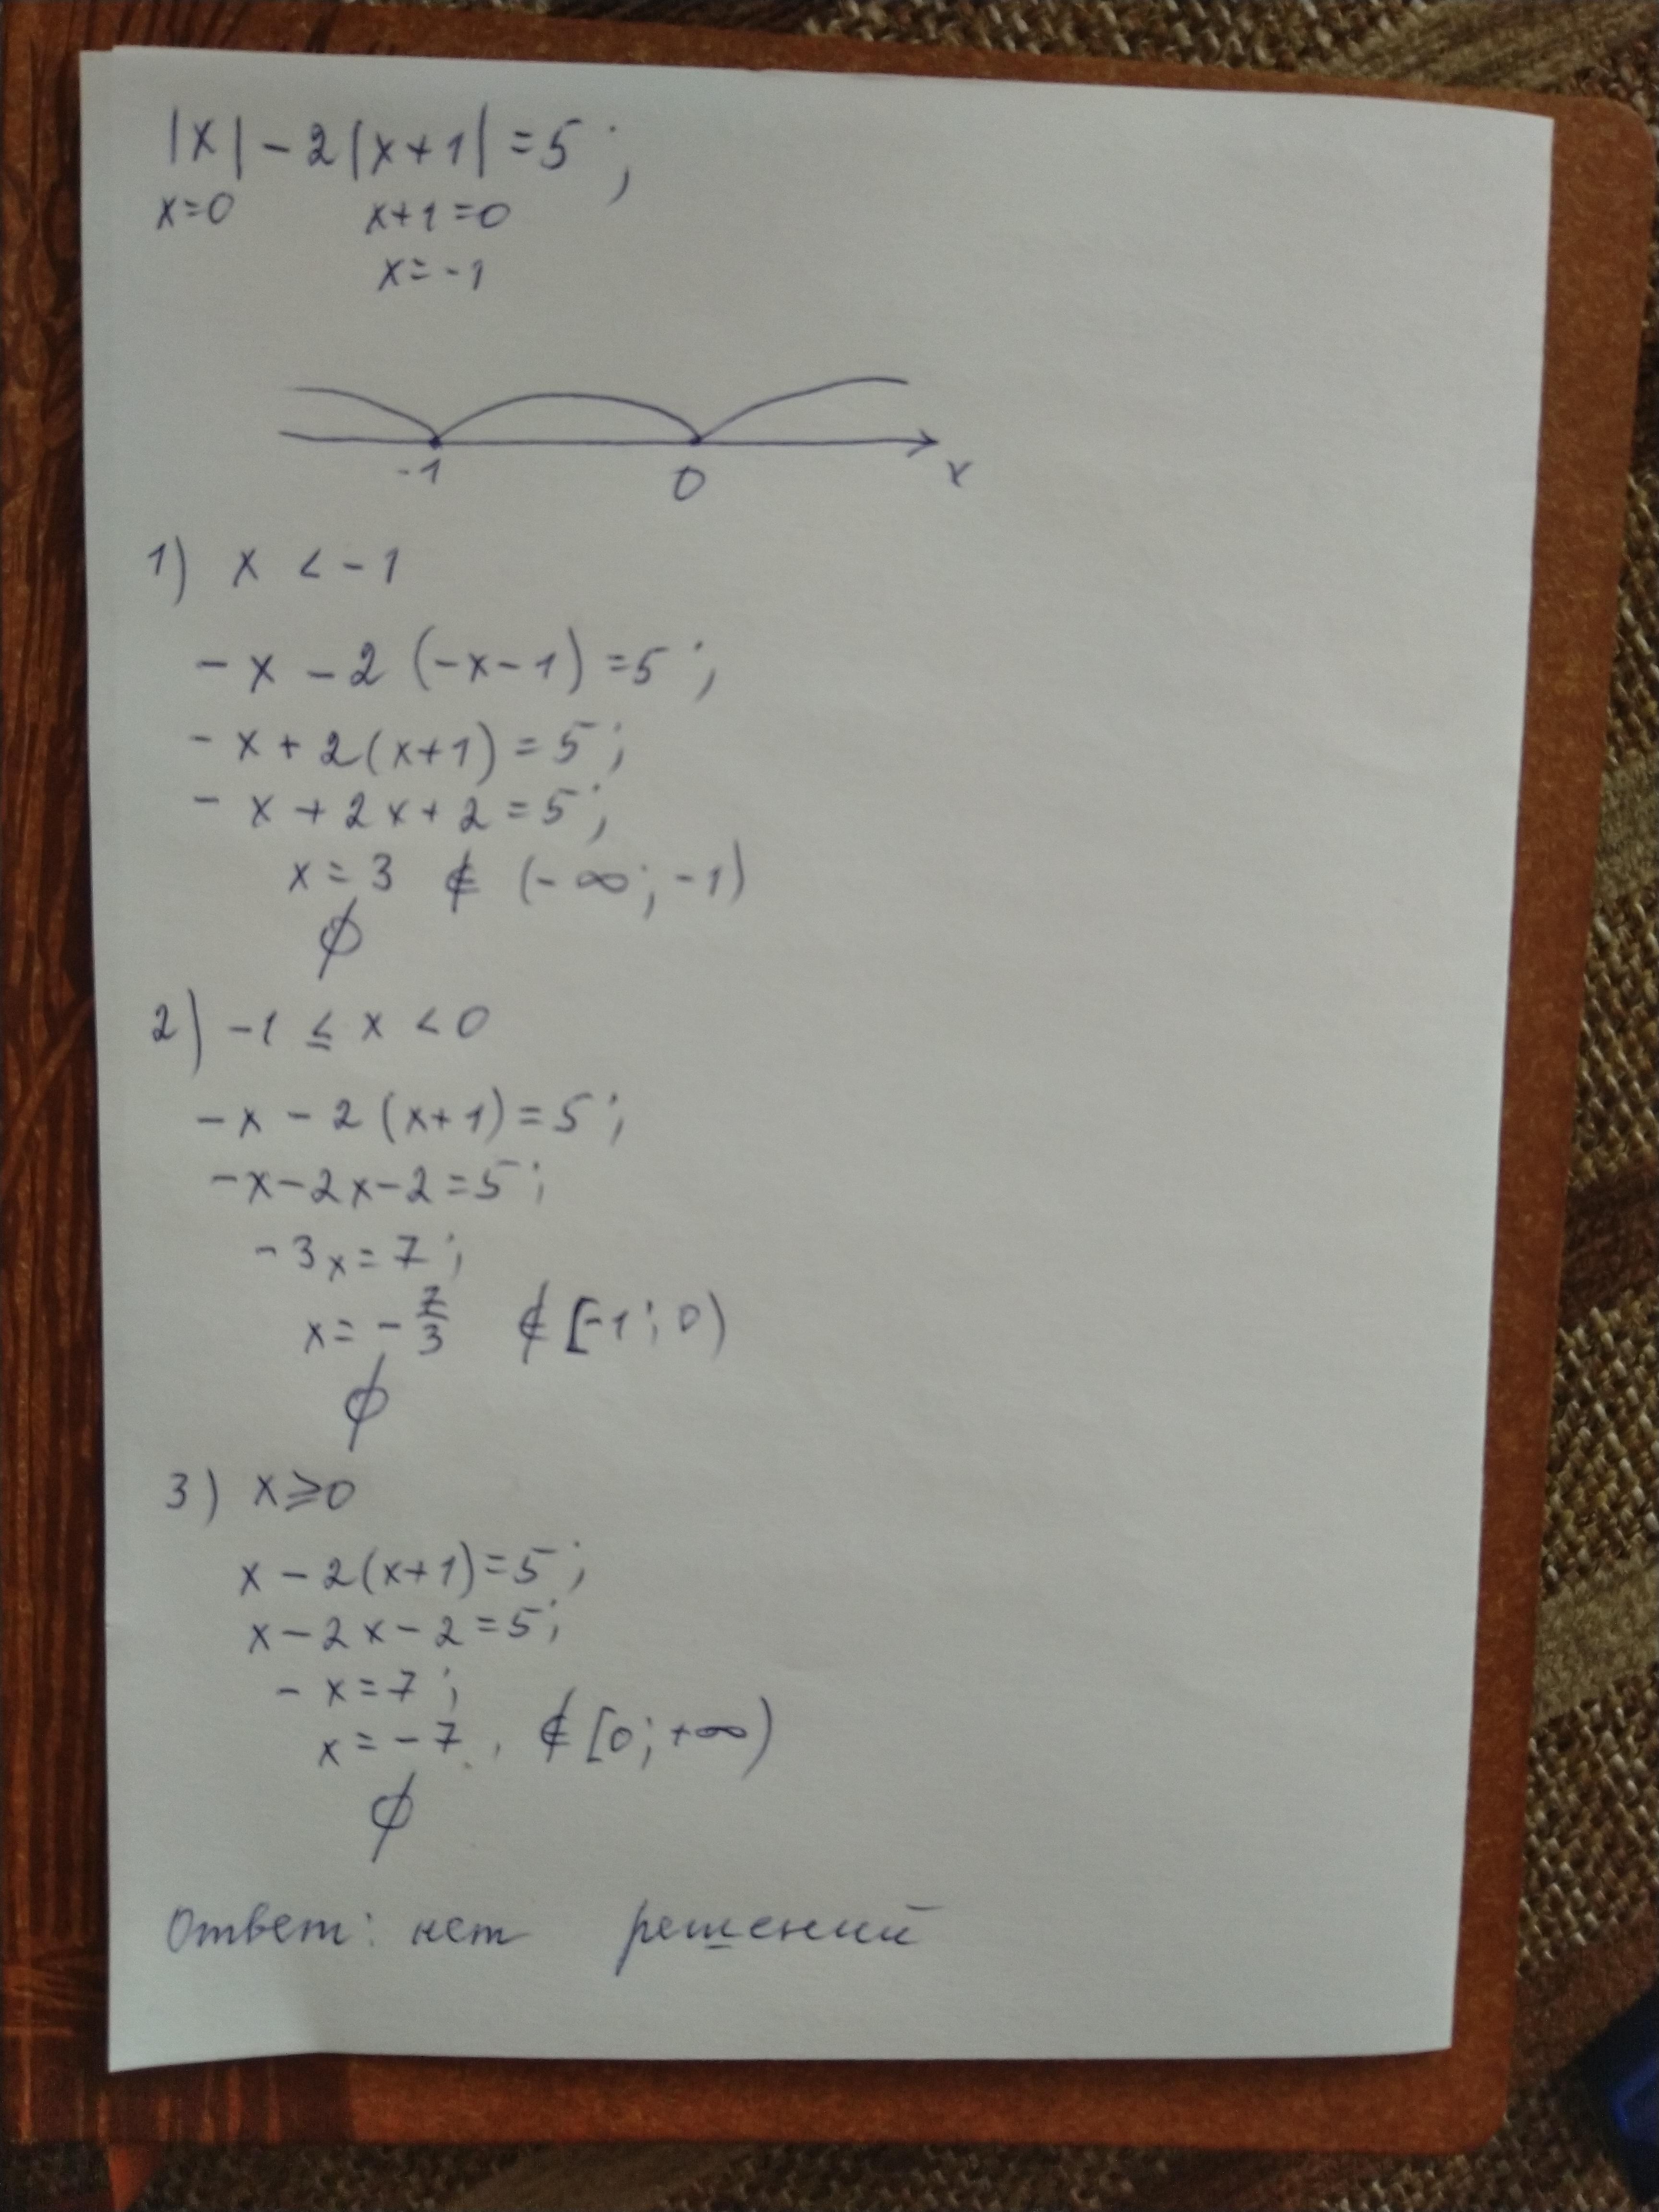 |x| - 2|x+1| = 5;
x=0 x+1=0
x=-1
-1 0 x
1) x < -1
-x - 2(-x-1) = 5;
-x + 2(x+1) = 5;
-x + 2x + 2 = 5;
x = 3 ∉ (-∞; -1)
∅
2) -1 ≤ x < 0
-x - 2(x+1) = 5;
-x - 2x - 2 = 5;
-3x = 7;
x = -7/3 ∉ [-1; 0)
∅
3) x ≥ 0
x - 2(x+1) = 5;
x - 2x - 2 = 5;
-x = 7;
x = -7, ∉ [0; +∞)
∅
Ответ: нет решений